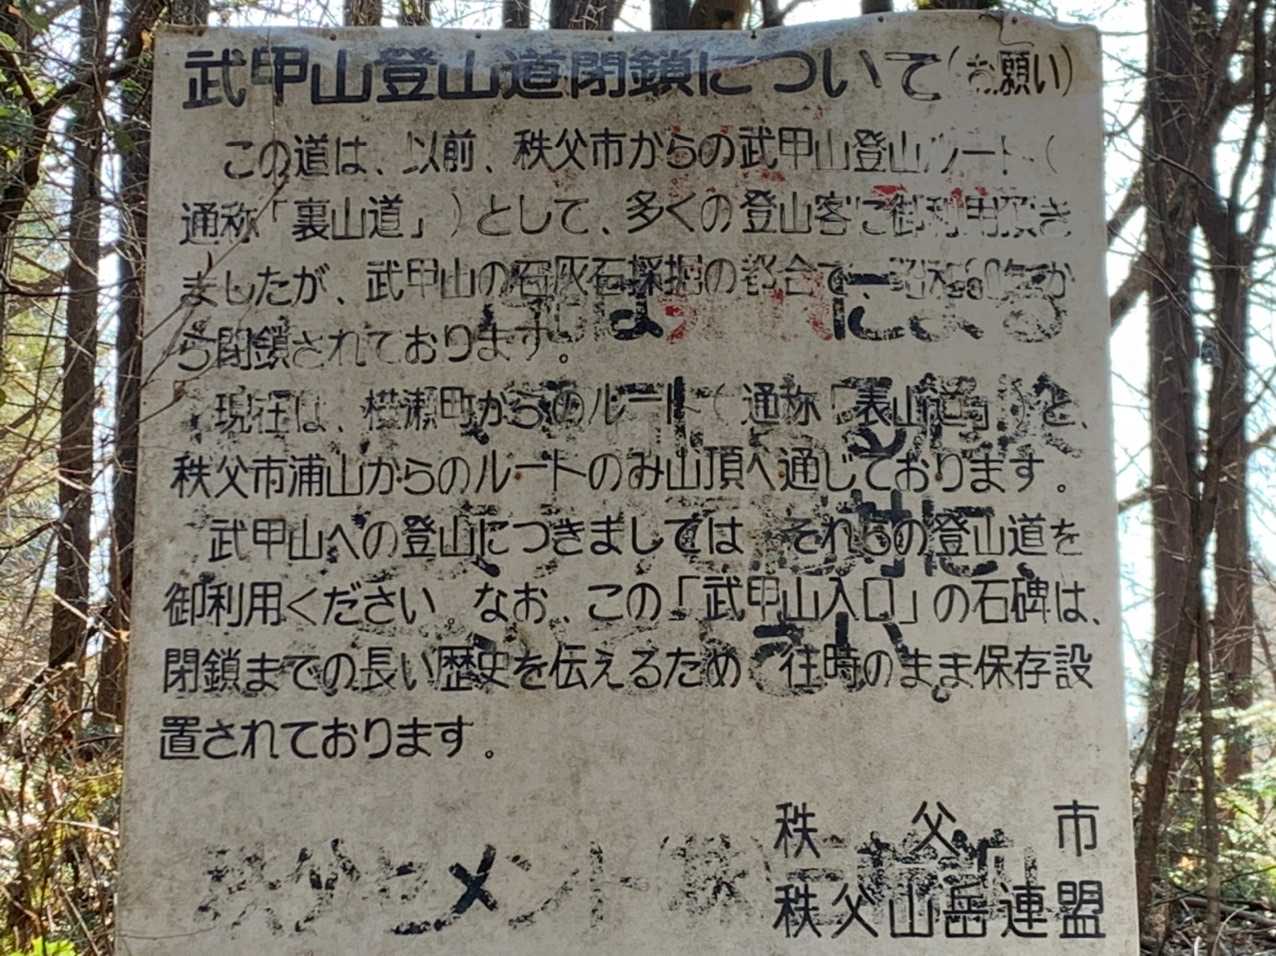 武甲山登山道閉鎖について(お願い)
この道は、以前、秩父市からの武甲山登山ルート(
通称「裏山道」)として、多くの登山客に御利用頂き
ましたが、武甲山の石灰石採掘の都合で、昭和 年か
ら閉鎖されております。
現在は、横瀬町からのルート(通称「表山道」)と、
秩父市浦山からのルートのみ山頂へ通じております。
武甲山への登山につきましては それらの登山道を
御利用ください なお、この「武甲山入口」の石碑は、
閉鎖までの長い歴史を伝えるため 往時のまま保存設
置されております。
秩父市
秩父山岳連盟
秩父セメント(株)